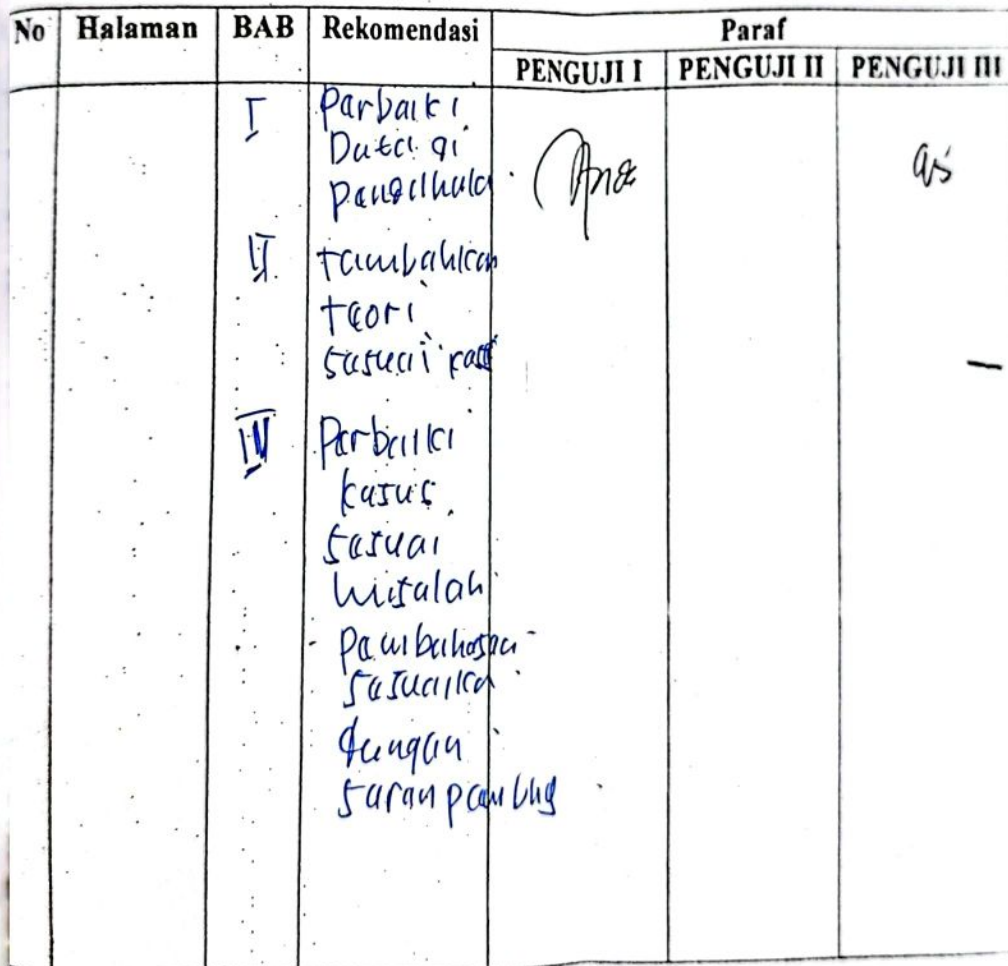 No Halaman BAB Rekomendasi Paraf
PENGUJI I PENGUJI II PENGUJI III
I Perbaiki
Data di
Pendahulu
II tambahkan
teori
sesuai
IV Perbaiki
kasus
sesuai
masalah
- Pembahasan
sesuaika
dengan
saran pembbg